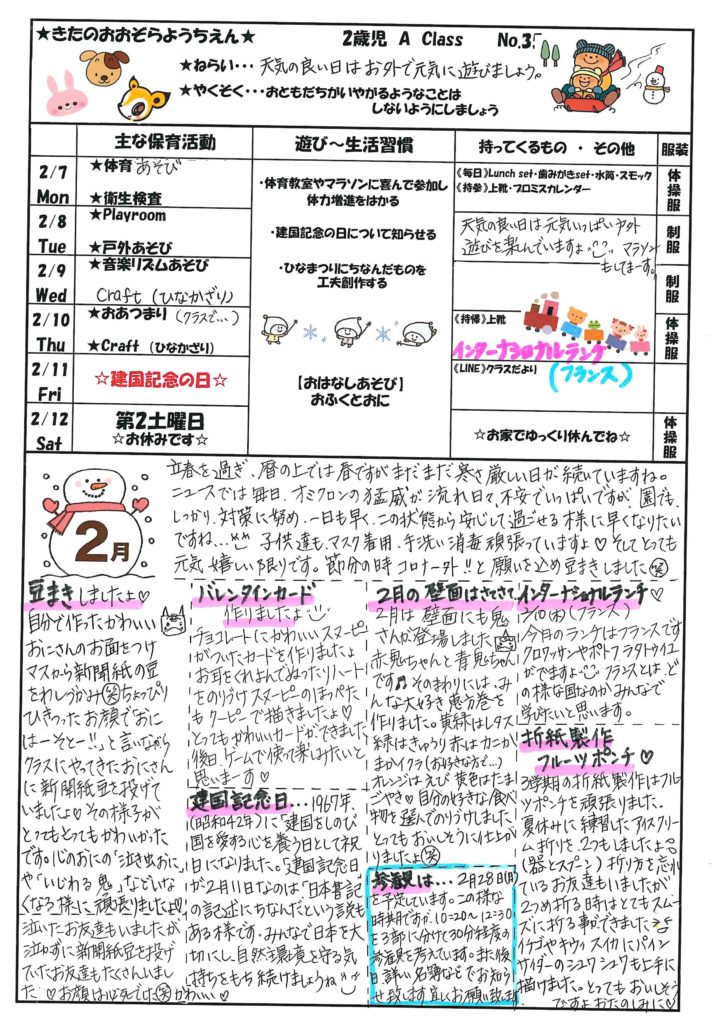 ★きたのおおぞらようちえん★
2歳児 A Class No.35
★ねらい・・・天気の良い日はお外で元気に遊びましょう。
★やくそく・・・おともだちがいやがるようなことは
しないようにしましょう
主な保育活動
遊び～生活習慣
持ってくるもの ・ その他
服装
2/7
Mon
★体育あそび
★衛生検査
2/8
Tue
★Playroom
★戸外あそび
2/9
Wed
★音楽リズムあそび
Craft (ひなかざり)
2/10
Thu
★おあつまり (クラスで…)
★Craft (ひなかざり)
2/11
Fri
☆建国記念の日☆
2/12
Sat
第2土曜日
☆お休みです☆
・体育教室やマラソンに喜んで参加し
体力増進をはかる
・建国記念の日について知らせる
・ひなまつりにちなんだものを
工夫創作する
【おはなしあそび】
おふくとおに
《毎日》Lunch set・歯みがきset・水筒・スモック
《持参》上靴・プロミスカレンダー
天気の良い日は元気いっぱい戸外
遊びを楽しんでいますよ マラソン
もしてまーす。
《持帰》上靴
インターナショナルランチ
《LINE》クラスだより
(フランス)
☆お家でゆっくり休んでね☆
体操服
制服
制服
体操服
体操服
2月
立春を過ぎ、暦の上では春ですがまだまだ寒さ厳しい日が続いていますね。
ニュースでは毎日、オミクロンの猛威が流れ日々、不安でいっぱいですが、園でも、
しっかり、対策に努め、一日も早く、この状態から安心して過ごせる様に早くなりたい
ですね… 子供達も、マスク着用、手洗い消毒頑張っていますよ♡そしてとっても
元気嬉しい限りです。節分の時コロナー外!!と願いを込め豆まきしました 笑
豆まきしましたよ♡
自分で作ったかわいい
おにさんのお面をつけ
マスから新聞紙の豆
をわしづかみ 笑 ちょっぴり
ひきつったお顔でおに
はーそとー!!。と言いながら
クラスにやってきたおにさん
に新聞紙豆を投げて
いましたよ♡その様子が
とってもとってもかわいかった
です。心のおにの「泣き虫おに」
や「いじわる鬼」などいな
くなる様に頑張りましたよ♡
泣いたお友達もいましたが
泣かずに新聞紙豆を投げ
ていたお友達もたくさんいまし
た♡お顔は必死でした 笑 かわいい♡
バレンタインカード
作りましたよ
チョコレートにかわいいスヌーピー
がついたカードを作りましたよ
お耳をくれよんでぬったりハート
をのりづけスヌーピーのほっぺた
もクーピーで描きましたよ♡
とってもかわいいカードができました
後日、ゲームで使って楽しみたいと
思いまーす♡
建国記念日…1967年、
(昭和42年)に「建国をしのび
国を愛する心を養う日として祝
日になりました。「建国記念日
が2月11日なのは「日本書記
の記述にちなんだという説も
ある様です。みんなで日本を大
切にし、自然や環境を守る気
持ちをもち続けましょうね
2月の壁面はさてさて
2月は壁面にも鬼
さんが登場しました
赤鬼ちゃんと青鬼ちゃん
です♫そのまわりには、み
んな大好き恵方巻を
作りました。黄緑はレタス
緑はきゅうり赤はカニかな
まかイクラ(お好きな方で…)
オレンジはえび黄色はたま
ごやき♡自分の好きな食べ
物を選んでのりづけしました
とってもおいしそうに仕上がり
ましたよ 笑
参観は… 2月28日(月)
を予定しています。この様な
時期ですが、10:20～12:30
を3部に分けて30分程度の
参観を考えています。また後
日、詳しい名簿などでお知ら
せ致します宜しくお願い致します
インターナショナルランチ♡
2/10(木)(フランス)
今日のランチはフランスです
クロワッサンやポトフラタトゥイユ
がでますよ フランスとは、ど
の様な国なのか、みんなで
学びたいと思います。
折紙製作
フルーツポンチ♡
3学期の折紙製作はフル
ーツポンチを頑張りました。
夏休みに練習したアイスクリー
ム折りを2つもしましたよ
(器とスプーン)折り方を忘れ
ているお友達もいましたが
2つめ折る時はとてもスムー
ズに折る事ができました
イチゴやキウィ スイカにパイン
サイダーのシュワシュワも上手に
描けました。とってもおいしそう
ですよおたのしみに♡